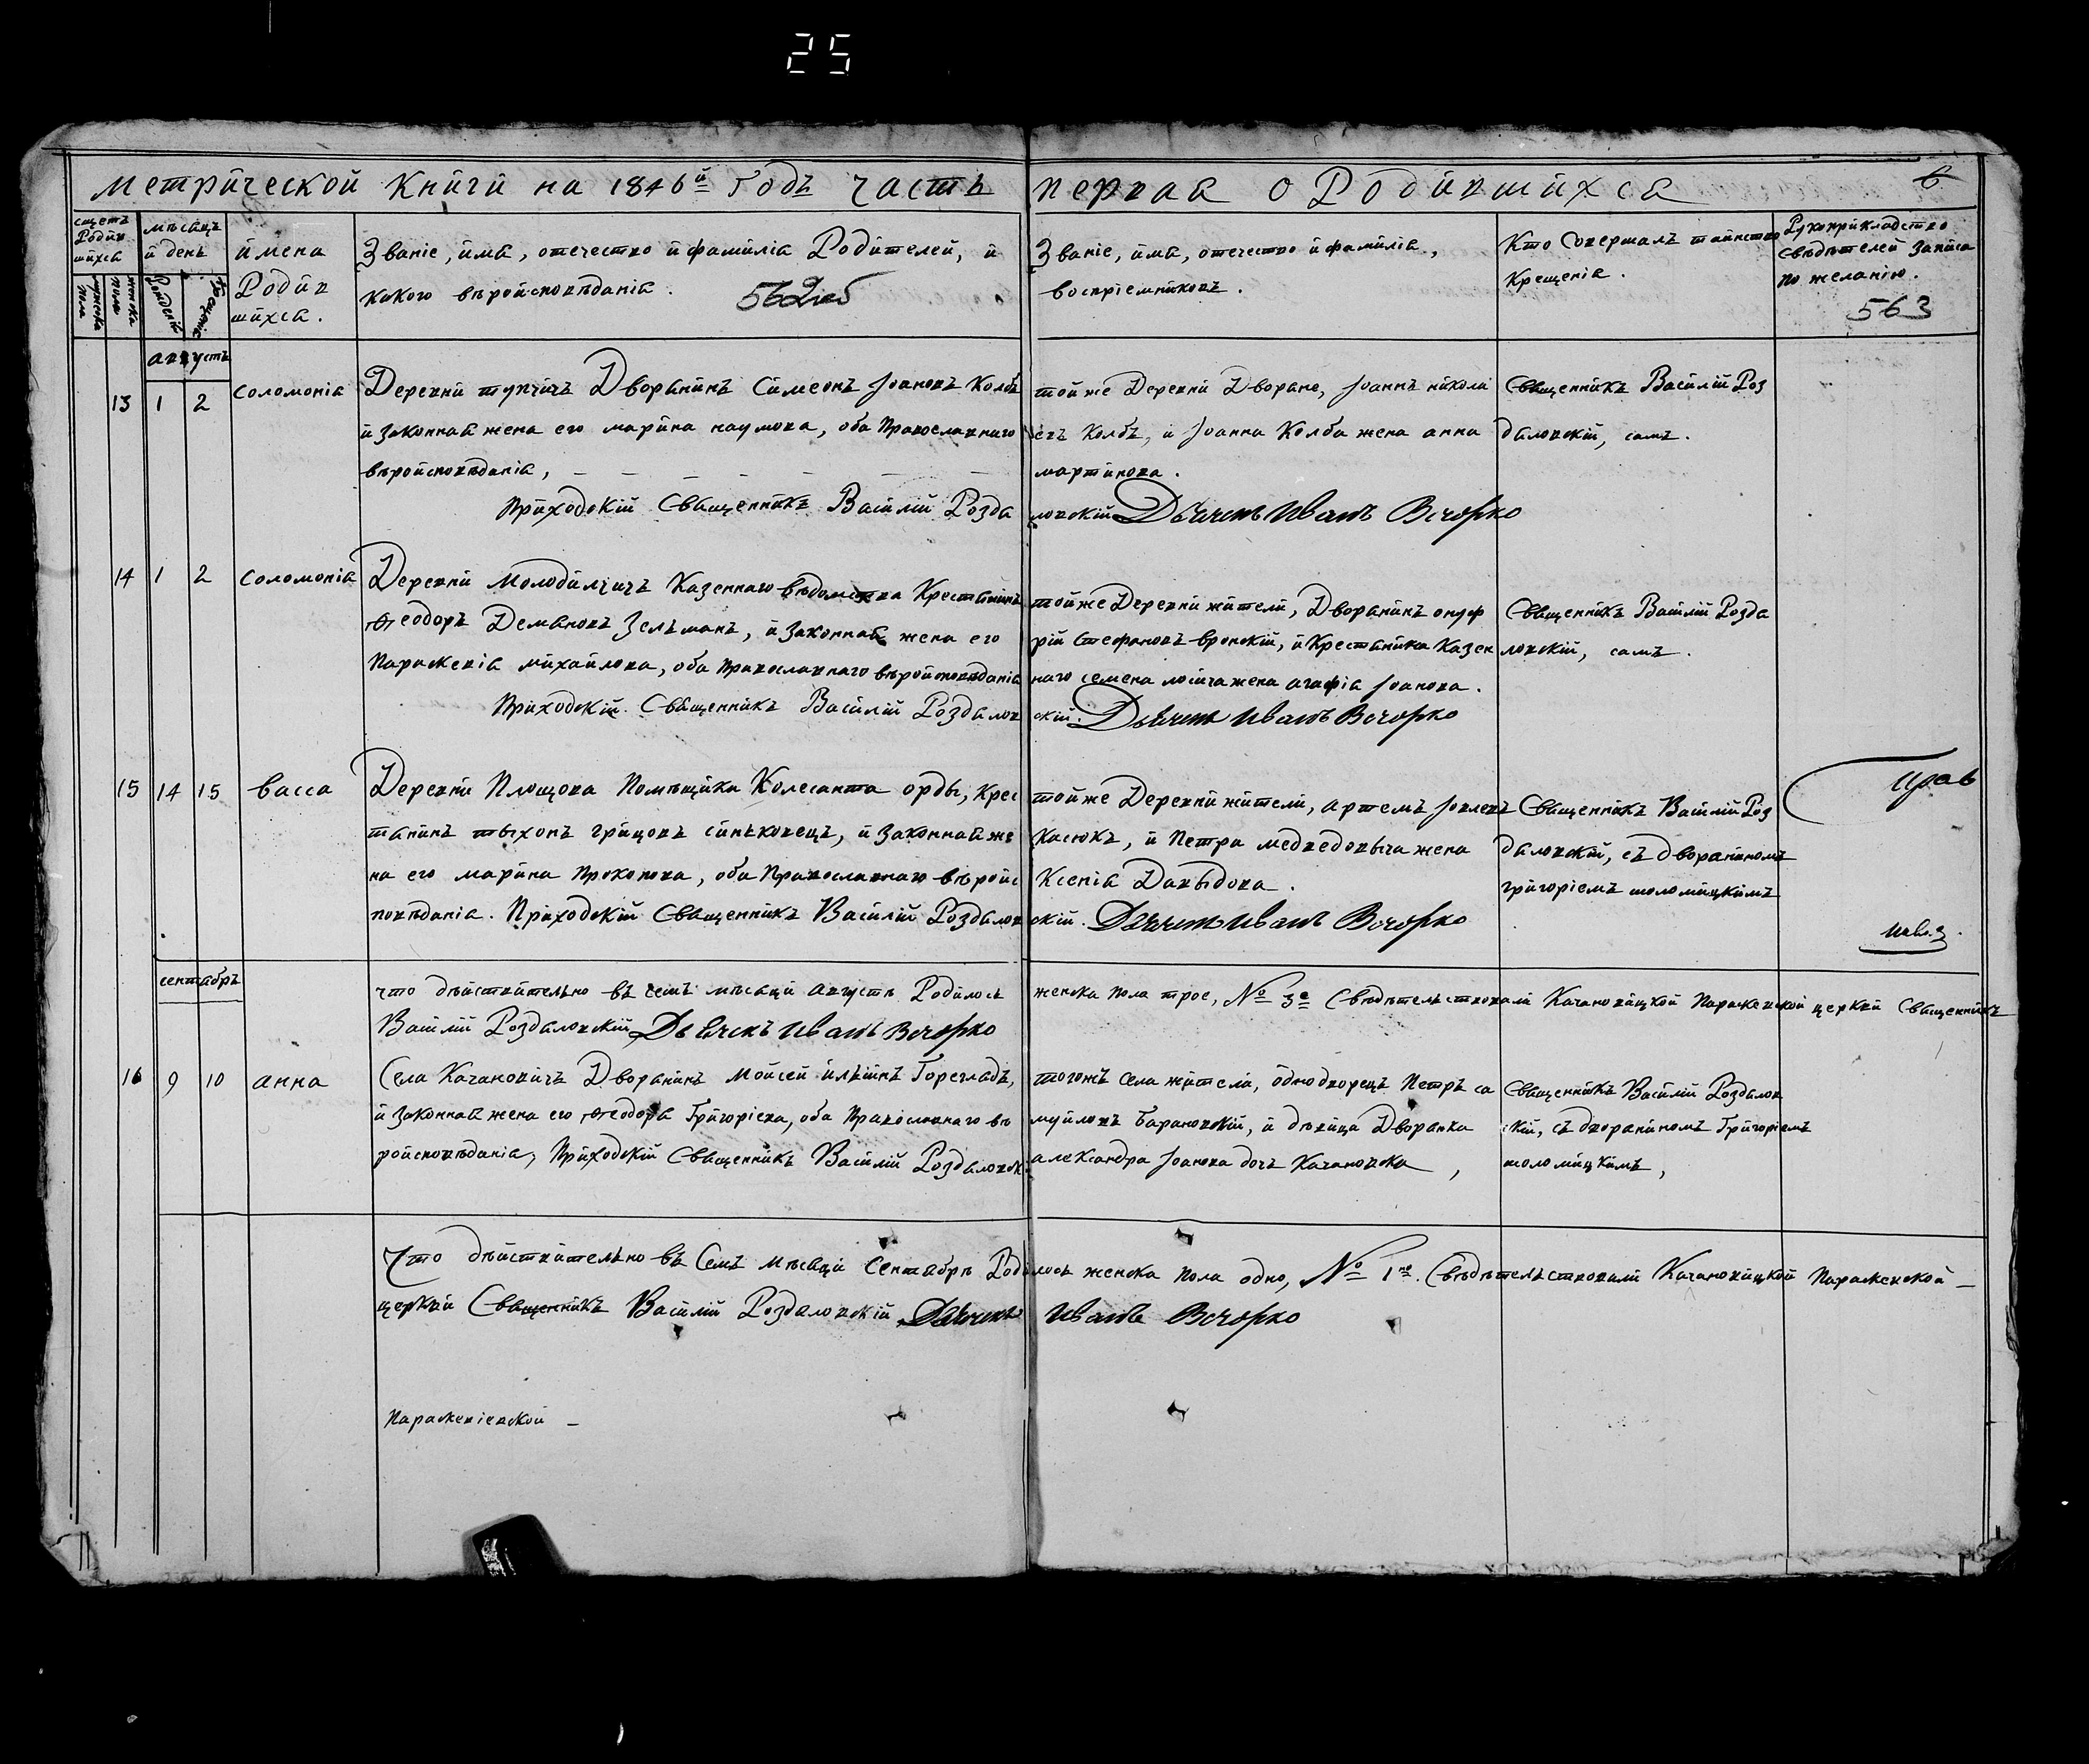 25
Метрической книги на 1846й годъ часть первая о Родившихся
6
счетъ Родившихся
мужеска пола
женска пола
мѣсяцъ и день
рожденія
крещенія
имена Родившихся.
Званіе, имя, отечество и фамилія Родителей, и
какого вѣроисповѣданія.
562об
Званіе, имя, отечество и фамилія,
воспріемниковъ.
Кто совершалъ таинство
Крещенія.
Рукоприкладство
свѣдѣтелей записи
по желанію.
563
августъ
13 1 2 Соломонія
Деревни тупчичъ Дворянинъ Симеонъ Іоановъ Колбъ
и законная жена его марина наумова, оба Православнаго
вѣроисповѣданія,
Приходскій Священникъ Василій Розда
тойже Деревни Дворяне, Іоаннъ никола
евъ Колбъ, и Іоанна Колба жена анна
мартинова.
ловскій Дьячекъ Иванъ Вечорко
Священникъ Василій Роз
даловскій, самъ.
14 1 2 Соломонія
Деревни Молодилчичъ Казеннаго вѣдомства Крестянинъ
Ѳеодоръ Демяновъ Зельманъ, и законная жена его
Параскевія михайлова, оба Православнаго вѣроисповѣданія
Приходскій Священникъ Василій Роздалов
тойже Деревни жители, Дворянинъ онуф
рій стефановъ вронскій, и Крестянина Казен
наго семена жена агафія Іоанова.
скій. Дьячекъ Иванъ Вечорко
Священникъ Василій Розда
ловскій, самъ.
15 14 15 васса
Деревни Площова Помѣщика Колесанта орды, Крес
тянинъ тыхонъ грицовъ синьковецъ, и законная же
на его марина Прокопова, оба Православнаго вѣроис
повѣданія. Приходскій Священникъ Василій Роздалов
тойже Деревни жители, артемъ Іовлевъ
Касюкъ, и Петра медведовыча жена
Ксенія Давыдова.
скій. Дьячекъ Иванъ Вечорко
Священникъ Василій Роз
даловскій, съ дворяниномъ
григоріемъ шоломицкимъ
сентябръ
что дѣйствительно въ семъ мѣсяци августѣ Родилось женска пола трое, № 3е Свѣдѣтельствовали Качановицкой Паракевской церкви Священникъ
Василій Роздаловскій Дьячекъ Иванъ Вечорко
16 9 10 анна
Села Качановичъ Дворянинъ Мойсей ильинъ Гореглядъ,
и законная жена его Ѳеодора Григоріева, оба Православнаго вѣ
роисповѣданія, Приходскій Священникъ Василій Роздаловск.
тогожъ Села жители, однодворецъ Петръ са
муйловъ Барановскій, и дѣвица Дворянка
александра Іоанова дочъ Качановска,
Священникъ Василій Роздалов
скій, съ дворяниномъ Григоріемъ
шоломицкимъ,
Что дѣйствительно въ Семъ мѣсяци Сентябрѣ Родилось женска пола одно, № 1но. Свѣдѣтельствовали Качановицкой Паракевской
церкви Священникъ Василій Роздаловскій Дьячекъ Иванъ Вечорко
Параскевіевской